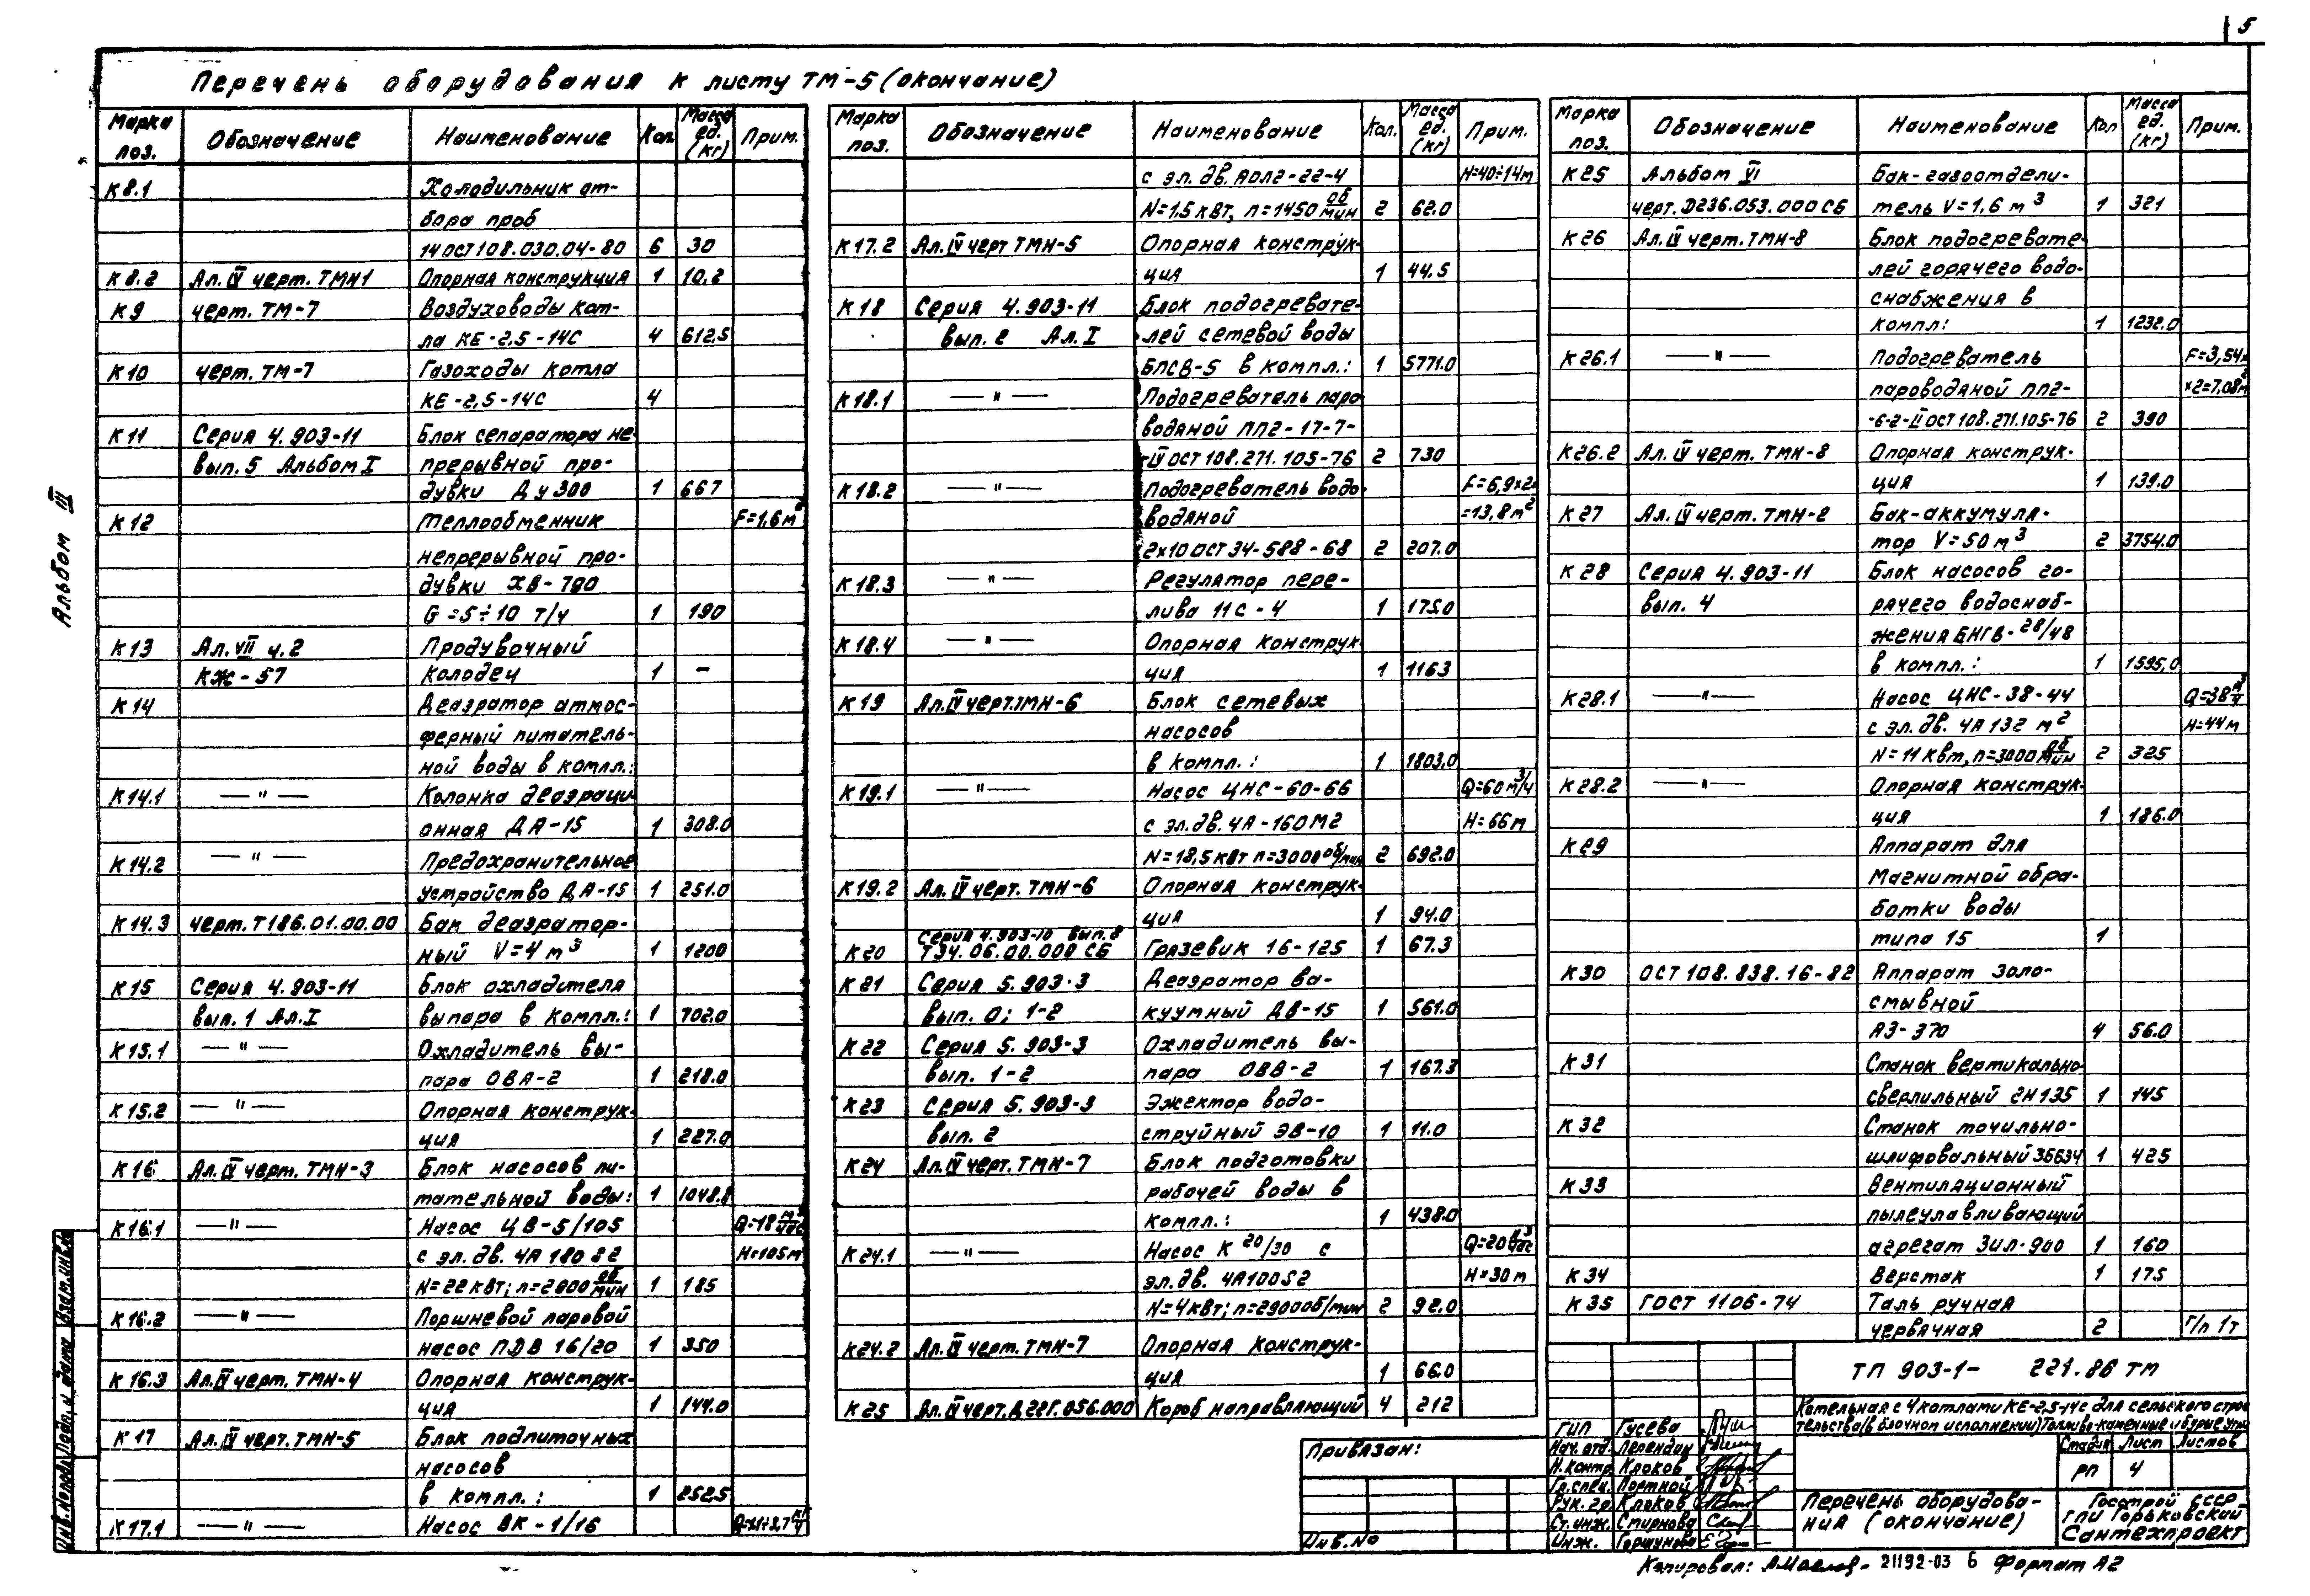 5
Перечень оборудования к листу ТМ-5 (окончание)
Марка поз. Обозначение Наименование Кол. Масса ед. (кг) Прим.
К8.1 Холодильник от-
бора проб
14 ОСТ 108.030.04-80 6 30
К8.2 Ал. IV черт. ТМН1 Опорная конструкция 1 10,2
К9 черт. ТМ-7 Воздуховоды кот-
ла КЕ-2,5-14С 4 612,5
К10 черт. ТМ-7 Газоходы котла
КЕ-2,5-14С 4
К11 Серия 4.903-11 Блок сепаратора не-
вып. 5 Альбом I прерывной про-
дувки Ду 300 1 667
К12 Теплообменник F=1,6м²
непрерывной про-
дувки ХВ-790
G=5÷10 т/ч 1 190
К13 Ал. VII ч.2 Продувочный
КЖ-57 Колодец 1 –
К14 Деаэратор атмос-
ферный питатель-
ной воды в компл.:
К14.1 —"— Колонка деаэраци-
онная ДА-15 1 308.0
К14.2 —"— Предохранительное
устройство ДА-15 1 251.0
К14.3 черт. Т186.01.00.00 Бак деаэратор-
ный V=4 м³ 1 1200
К15 Серия 4.903-11 Блок охладителя
вып. 1 Ал. I выпара в компл.: 1 702.0
К15.1 —"— Охладитель вы-
пара ОВА-2 1 218.0
К15.2 —"— Опорная конструк-
ция 1 227.0
К16 Ал. IV черт. ТМН-3 Блок насосов пи-
тательной воды: 1 1048.8
К16.1 —"— Насос ЦВ-5/105 Q=18 м³/час
с эл. дв. 4А 180 S2 H=105м
N=22 кВт; n=2900 об/мин 1 185
К16.2 —"— Поршневой паровой
насос ПДВ 16/20 1 350
К16.3 Ал. IV черт. ТМН-4 Опорная конструк-
ция 1 144.0
К17 Ал. IV черт. ТМН-5 Блок подпиточных
насосов
в компл.: 1 252,5
К17.1 —"— Насос ВК-1/16 Q=1,1÷3,7 м³/ч
Марка поз. Обозначение Наименование Кол. Масса ед. (кг) Прим.
с эл. дв. АОЛ2-22-4 H=40÷14м
N=1.5 кВт, n=1450 об/мин 2 62.0
К17.2 Ал. IV черт ТМН-5 Опорная конструк-
ция 1 44,5
К18 Серия 4.903-11 Блок подогревате-
вып. 2 Ал. I лей сетевой воды
БПСВ-5 в компл.: 1 5771.0
К18.1 —"— Подогреватель паро
водяной ПП2-17-7-
-IV ОСТ 108.271.105-76 2 730
К18.2 —"— Подогреватель водо- F=6,9×2=
водяной =13,8м²
2×10 ОСТ 34-588-68 2 207.0
К18.3 —"— Регулятор пере-
лива 11С-4 1 175.0
К18.4 —"— Опорная конструк-
ция 1 1163
К19 Ал. IV черт. ТМН-6 Блок сетевых
насосов
в компл.: 1 1803,0
К19.1 —"— Насос ЦНС-60-66 Q=60 м³/ч
с эл. дв. 4А-160М2 H=66м
N=18,5 кВт n=3000 об/мин 2 692.0
К19.2 Ал. IV черт. ТМН-6 Опорная конструк-
ция 1 94.0
К20 Серия 4.903-10 вып. 8 Т34.06.00.000 СБ Грязевик 16-125 1 67.3
К21 Серия 5.903-3 Деаэратор ва-
вып. 0; 1-2 куумный ДВ-15 1 561.0
К22 Серия 5.903-3 Охладитель вы-
вып. 1-2 пара ОВВ-2 1 167.3
К23 Серия 5.903-3 Эжектор водо-
вып. 2 струйный ЭВ-10 1 11.0
К24 Ал. IV черт. ТМН-7 Блок подготовки
рабочей воды в
компл.: 1 438.0
К24.1 —"— Насос К 20/30 с Q=20 м³/час
эл. дв. 4А100S2 H=30м
N=4 кВт; n=2900 об/мин 2 92.0
К24.2 Ал. IV черт. ТМН-7 Опорная конструк-
ция 1 66.0
К25 Ал. IV черт. Д22Г.056.000 Короб направляющий 4 212
Марка поз. Обозначение Наименование Кол Масса ед. (кг) Прим.
К25 Альбом VI Бак-газоотдели-
черт. D236.053.000 СБ тель V=1,6 м³ 1 321
К26 Ал. IV черт. ТМН-8 Блок подогревате-
лей горячего водо-
снабжения в
компл: 1 1232.0
К26.1 —"— Подогреватель F=3,54×
пароводяной ПП2- ×2=7.08м²
-6-2-II ОСТ 108.271.105-76 2 390
К26.2 Ал. IV черт. ТМН-8 Опорная конструк-
ция 1 139.0
К27 Ал. IV черт. ТМН-2 Бак-аккумуля-
тор V=50 м³ 2 3754.0
К28 Серия 4.903-11 Блок насосов го-
вып. 4 рячего водоснаб-
жения БНГВ-28/48
в компл.: 1 1595,0
К28.1 —"— Насос ЦНС-38-44 Q=38 м³/ч
с эл. дв. 4А 132 М2 H=44м
N=11 кВт, n=3000 об/мин 2 325
К28.2 —"— Опорная конструк-
ция 1 186.0
К29 Аппарат для
магнитной обра-
ботки воды
типа 15 1
К30 ОСТ 108.838.16-82 Аппарат золо-
смывной
АЗ-370 4 56.0
К31 Станок вертикально-
сверлильный 2Н135 1 145
К32 Станок точильно-
шлифовальный 3Б634 1 425
К33 Вентиляционный
пылеулавливающий
агрегат ЗИЛ-900 1 160
К34 Верстак 1 175
К35 ГОСТ 1106-74 Таль ручная
червячная 2 Г/п 1т
ТП 903-1- 221.86 ТМ
Котельная с 4 котлами КЕ-2,5-14С для сельского строи-
тельства (в блочном исполнении) Топливо-каменные и бурые угли
Стадия Лист Листов
РП 4
ГИП Гусева
Нач. отд. Легендин
Н. контр. Клоков
Гл. спец. Портной
Рук. гр. Клоков
Ст. инж. Смирнова
Инж. Горшунова
Перечень оборудова-
ния (окончание)
Госстрой СССР
ГПИ Горьковский
Сантехпроект
Привязан:
Инв. №
Альбом III
Инв. № подл. Подп. и дата Взам. инв. №
Копировал: 21192-03 6 Формат А2